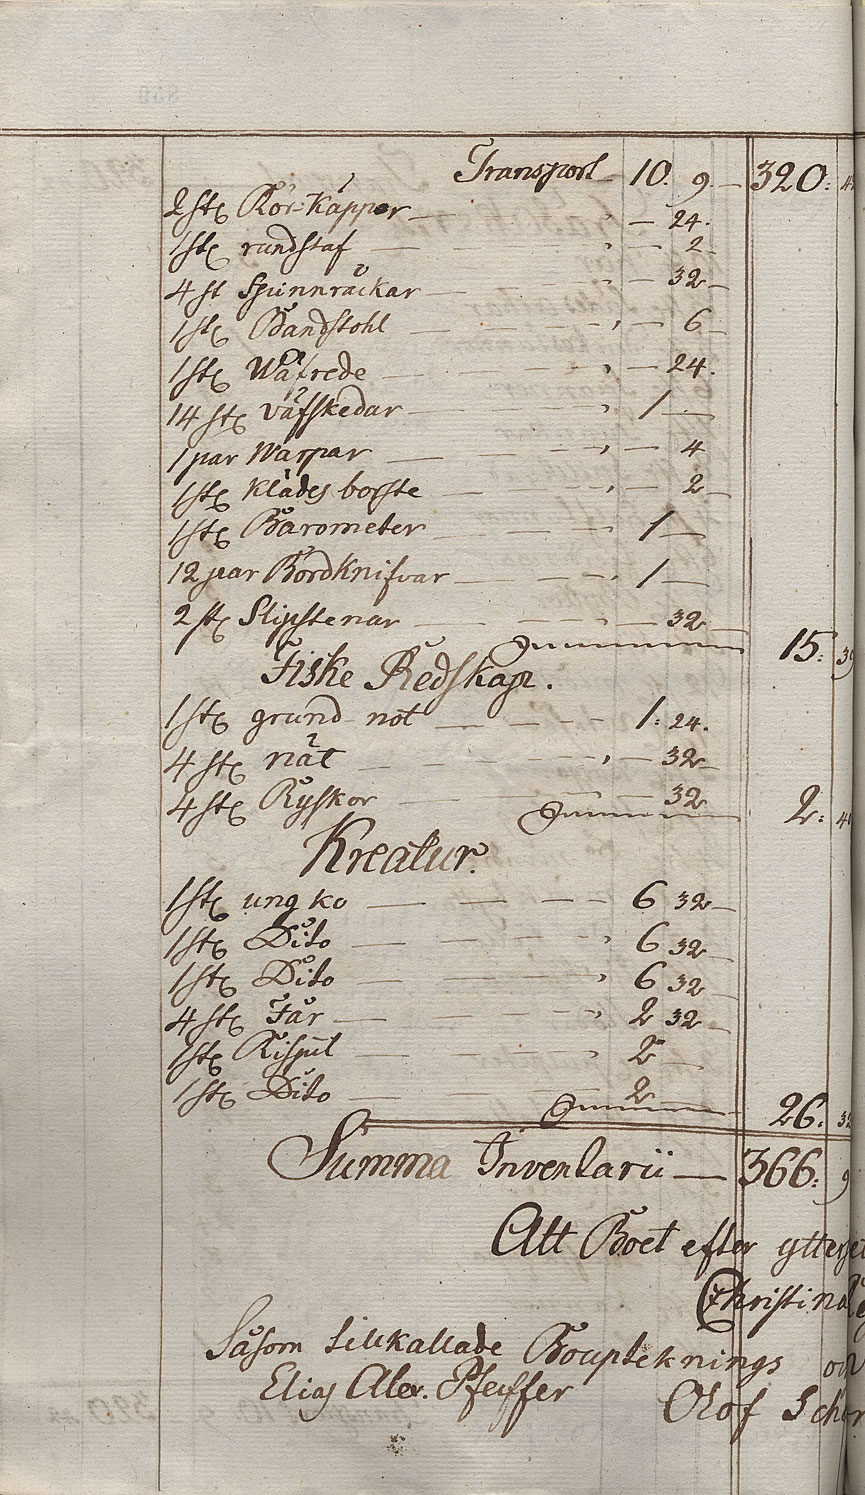 Transport 10. 9. 320: 4
2 stc Rör-Käppar 24.
1 stc rundstaf 2
4 st Spinnråckar 32
1 stc Bandstohl 6
1 stc Wäfrede 24.
14 stc väfskedar 1
1 par Warpar 4
1 stc klädes borste 2
1 stc Barometer 1
12 par Bordknifvar 1
2 stc Slipstenar 32
15: 39
Fiske Redskap.
1 stc grund not 1. 24.
4 stc nät 32
4 stc Ryskor 32
2: 40
Kreatur.
1 stc ung ko 6 32
1 stc Dito 6 32
1 stc Dito 6 32
4 stc Får 2 32
1 stc 2
1 stc Dito 2
26: 32
Summa Inventarii 366: 9
Att Boet efter ytterst
Christina
Såsom tillkallade Boupteknings och
Elias Alex. Pfeiffer Olof Schör